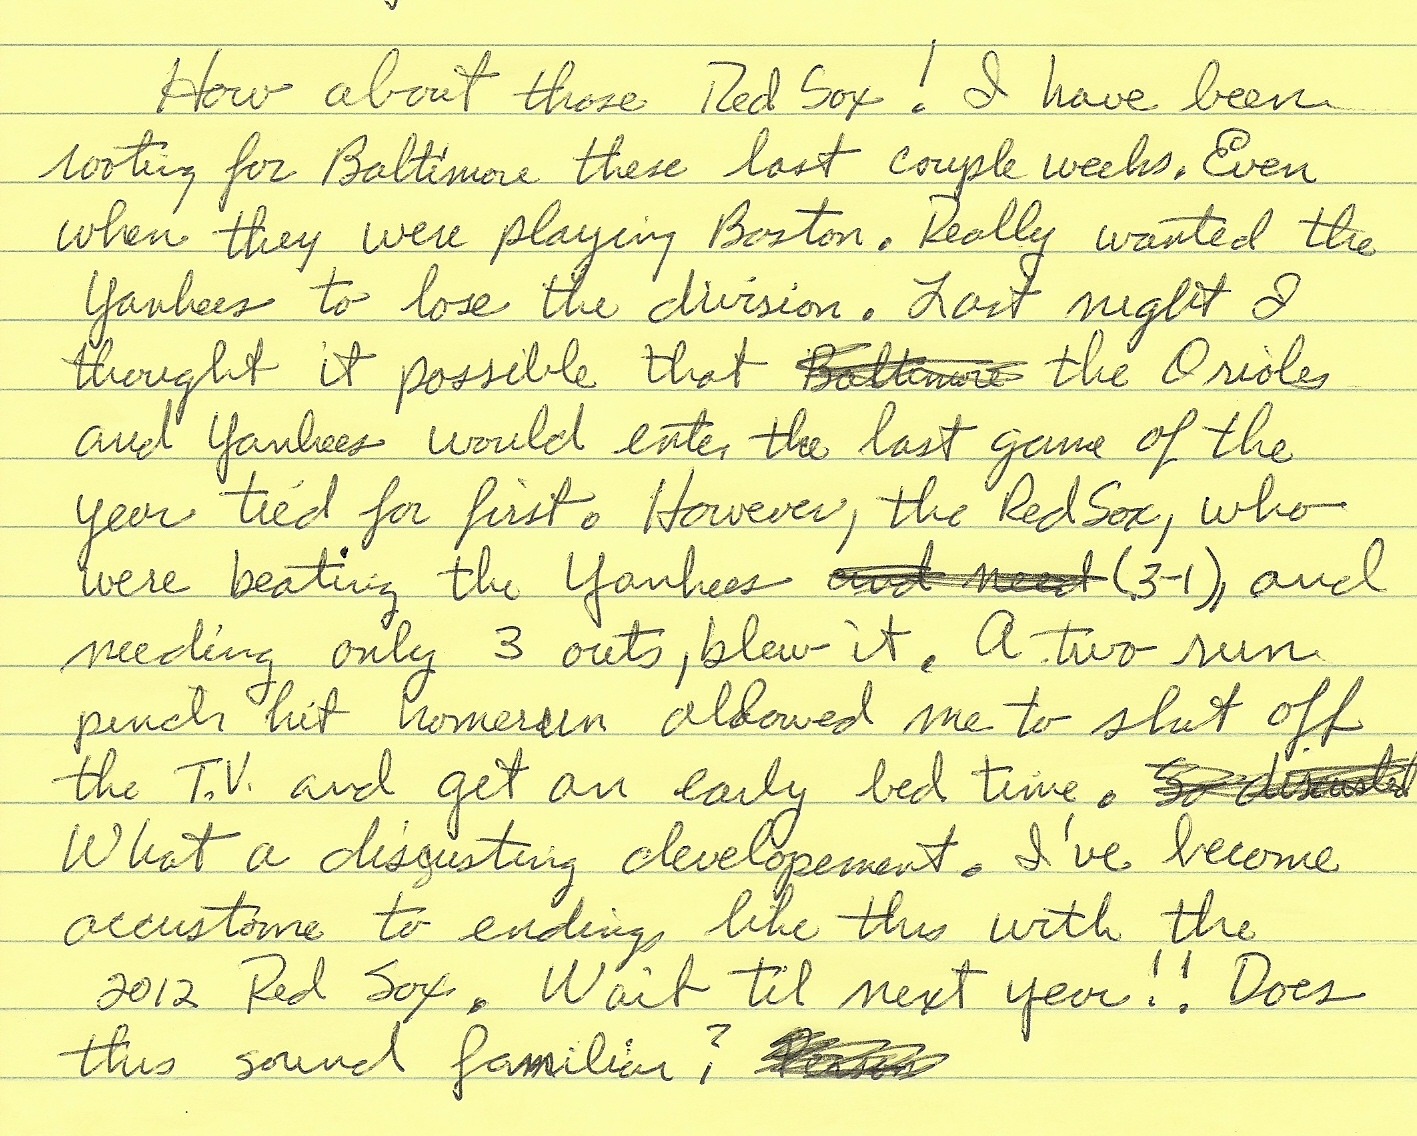 How about those Red Sox! I have been
rooting for Baltimore these last couple weeks. Even
when they were playing Boston. Really wanted the
Yankees to lose the division. Last night I
thought it possible that Baltimore the Orioles
and Yankees would enter the last game of the
year tied for first. However, the Red Sox, who
were beating the Yankees and need (3-1), and
needing only 3 outs, blew it. A two run
pinch hit homerun allowed me to shut off
the T.V. and get an early bed time. So
What a disgusting developement. I've become
accustome to endings like this with the
2012 Red Sox. Wait til next year!! Does
this sound familiar?